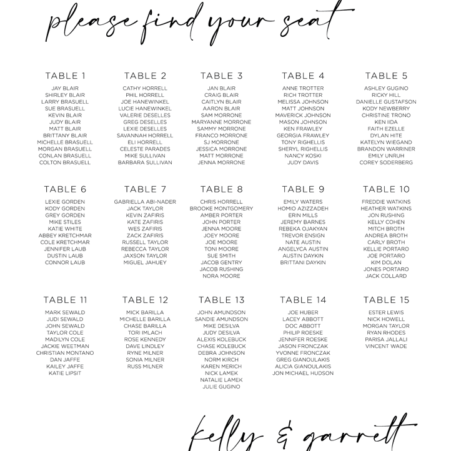 please find your seat
TABLE 1
JAY BLAIR
SHIRLEY BLAIR
LARRY BRASUELL
SUE BRASUELL
KEVIN BLAIR
JUDY BLAIR
MATT BLAIR
BRITTANY BLAIR
MICHELLE BRASUELL
MORGAN BRASUELL
CONLAN BRASUELL
COLTON BRASUELL
TABLE 2
CATHY HORRELL
PHIL HORRELL
JOE HANEWINKEL
LUCIE HANEWINKEL
VALERIE DESELLES
GREG DESELLES
LEXIE DESELLES
SAVANNAH HORRELL
ELI HORRELL
CELESTE PARADES
MIKE SULLIVAN
BARBARA SULLIVAN
TABLE 3
JAN BLAIR
CRAIG BLAIR
CAITLYN BLAIR
AARON BLAIR
SAM MORRONE
MARYANNE MORRONE
SAMMY MORRONE
FRANCO MORRONE
SJ MORRONE
JESSICA MORRONE
MATT MORRONE
JENNA MORRONE
TABLE 4
ANNE TROTTER
RICH TROTTER
MELISSA JOHNSON
MATT JOHNSON
MAVERICK JOHNSON
MASON JOHNSON
KEN FRAWLEY
GEORGIA FRAWLEY
TONY RIGHELLIS
SHERYL RIGHELLIS
NANCY KOSKI
JUDY DAVIS
TABLE 5
ASHLEY GUGINO
RICKY HILL
DANIELLE GUSTAFSON
KODY NEWBERRY
CHRISTINE TRONO
KEN IDA
FAITH EZELLE
DYLAN HITE
KATELYN WIEGAND
BRANDON WARRINER
EMILY UNRUH
COREY SODERBERG
TABLE 6
LEXIE GORDEN
KODY GORDEN
GREY GORDEN
MIKE STILES
KATIE WHITE
ABBEY KRETCHMAR
COLE KRETCHMAR
JENNIFER LAUB
DUSTIN LAUB
CONNOR LAUB
TABLE 7
GABRIELLA ABI-NADER
JACK TAYLOR
KEVIN ZAFIRIS
KATE ZAFIRIS
WES ZAFIRIS
ZACK ZAFIRIS
RUSSELL TAYLOR
REBECCA TAYLOR
JAXSON TAYLOR
MIGUEL JAHUEY
TABLE 8
CHRIS HORRELL
BROOKE MONTGOMERY
AMBER PORTER
JOHN PORTER
JENNA MOORE
JOEY MOORE
JOE MOORE
TONI MOORE
SUE SMITH
JACOB GENTRY
JACOB RUSHING
NORA MOORE
TABLE 9
EMILY WATERS
HOMIO AZIZZADEH
ERIN MILLS
JEREMY BARNES
REBEKA CUAHYAN
TREVOR ENSIGN
NATE AUSTIN
ANGELYCA AUSTIN
AUSTIN DAYKIN
BRITTANI DAYKIN
TABLE 10
FREDDIE WATKINS
HEATHER WATKINS
JON RUSHING
KELLY COHEN
MITCH BROTH
ANDREA BROTH
CARLY BROTH
KELLIE PORTARO
JOE PORTARO
KIM DOLAN
JONES PORTARO
JACK COLLARD
TABLE 11
MARK SEWALD
JUDI SEWALD
JOHN SEWALD
TAYLOR COLE
MADILYN COLE
JACKIE WEETMAN
CHRISTIAN MONTANO
DAN JAFFE
KAILEY JAFFE
KATIE LIPSIT
TABLE 12
MICK BARILLA
MICHELLE BARILLA
CHASE BARILLA
TORI IMLACH
ROSE KENNEDY
DAVE LINDLEY
RYNE MILNER
SONIA MILNER
RUSS MILNER
TABLE 13
JOHN AMUNDSON
SANDIE AMUNDSON
MIKE DESILVA
JUDY DESILVA
ALEXIS KOLEBUCK
CHASE KOLEBUCK
DEBRA JOHNSON
NORM KIRCH
KAREN MERICH
NICK LAMEK
NATALIE LAMEK
JULIE GUGINO
TABLE 14
JOE HUBER
LACEY ABBOTT
DOC ABBOTT
PHILIP ROESKE
JENNIFER ROESKE
JASON FRONCZAK
YVONNE FRONCZAK
GREG GIANOULAKIS
ALICIA GIANOULAKIS
JON MICHAEL HUDSON
TABLE 15
ESTER LEWIS
NICK HOWELL
MORGAN TAYLOR
RYAN RHODES
PARISA JALLALI
VINCENT WADE
kelly & garrett